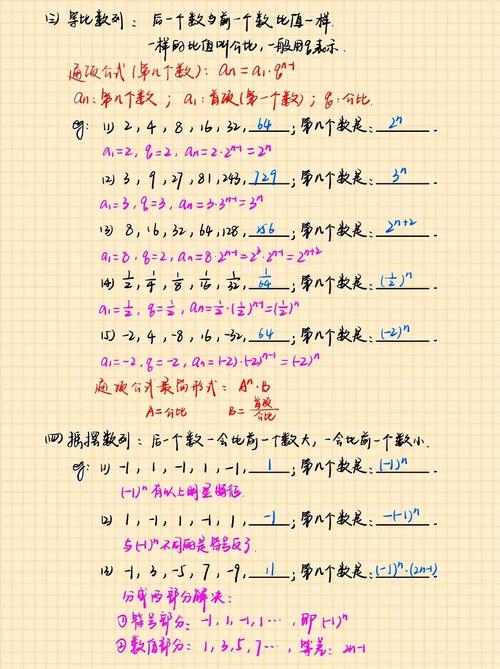 (三) 等比数列：后一个数与前一个数比值一样.
一样的比值叫公比，一般用q表示.
通项公式(第n个数)：an=a₁·qⁿ⁻¹
an：第n个数；a₁：首项(第一个数)；q：公比.
eg: (1) 2, 4, 8, 16, 32, 64 ；第n个数是：2ⁿ.
a₁=2, q=2, an=2·2ⁿ⁻¹=2ⁿ
(2) 3, 9, 27, 81, 243, 729 ；第n个数是：3ⁿ.
a₁=3, q=3, an=3·3ⁿ⁻¹=3ⁿ
(3) 8, 16, 32, 64, 128, 256 ；第n个数是：2ⁿ⁺².
a₁=8, q=2, an=8·2ⁿ⁻¹=2³·2ⁿ⁻¹=2ⁿ⁺²
(4) 1/2, 1/4, 1/8, 1/16, 1/32, 1/64 ；第n个数是：(1/2)ⁿ.
a₁=1/2, q=1/2, an=1/2·(1/2)ⁿ⁻¹=(1/2)ⁿ
(5) -2, 4, -8, 16, -32, 64 ；第n个数是：(-2)ⁿ.
a₁=-2, q=-2, an=(-2)·(-2)ⁿ⁻¹=(-2)ⁿ
通项公式最简形式：Aⁿ·B
A=公比 B=首项/公比
(四) 摇摆数列：后一个数一会比前一个数大，一会比前一个数小.
eg: (1) -1, 1, -1, 1, -1, 1 ；第n个数是：(-1)ⁿ.
(-1)ⁿ有以上明显特征.
(2) 1, -1, 1, -1, 1, -1 ；第n个数是：-(-1)ⁿ.
与(-1)ⁿ不同的是符号反了.
(3) -1, 3, -5, 7, -9, 11 ；第n个数是：(-1)ⁿ·(2n-1)
分成两部分解决：
①符号部分：-1, 1, -1, 1…，即(-1)ⁿ
②数值部分：1, 3, 5, 7…，等差：2n-1